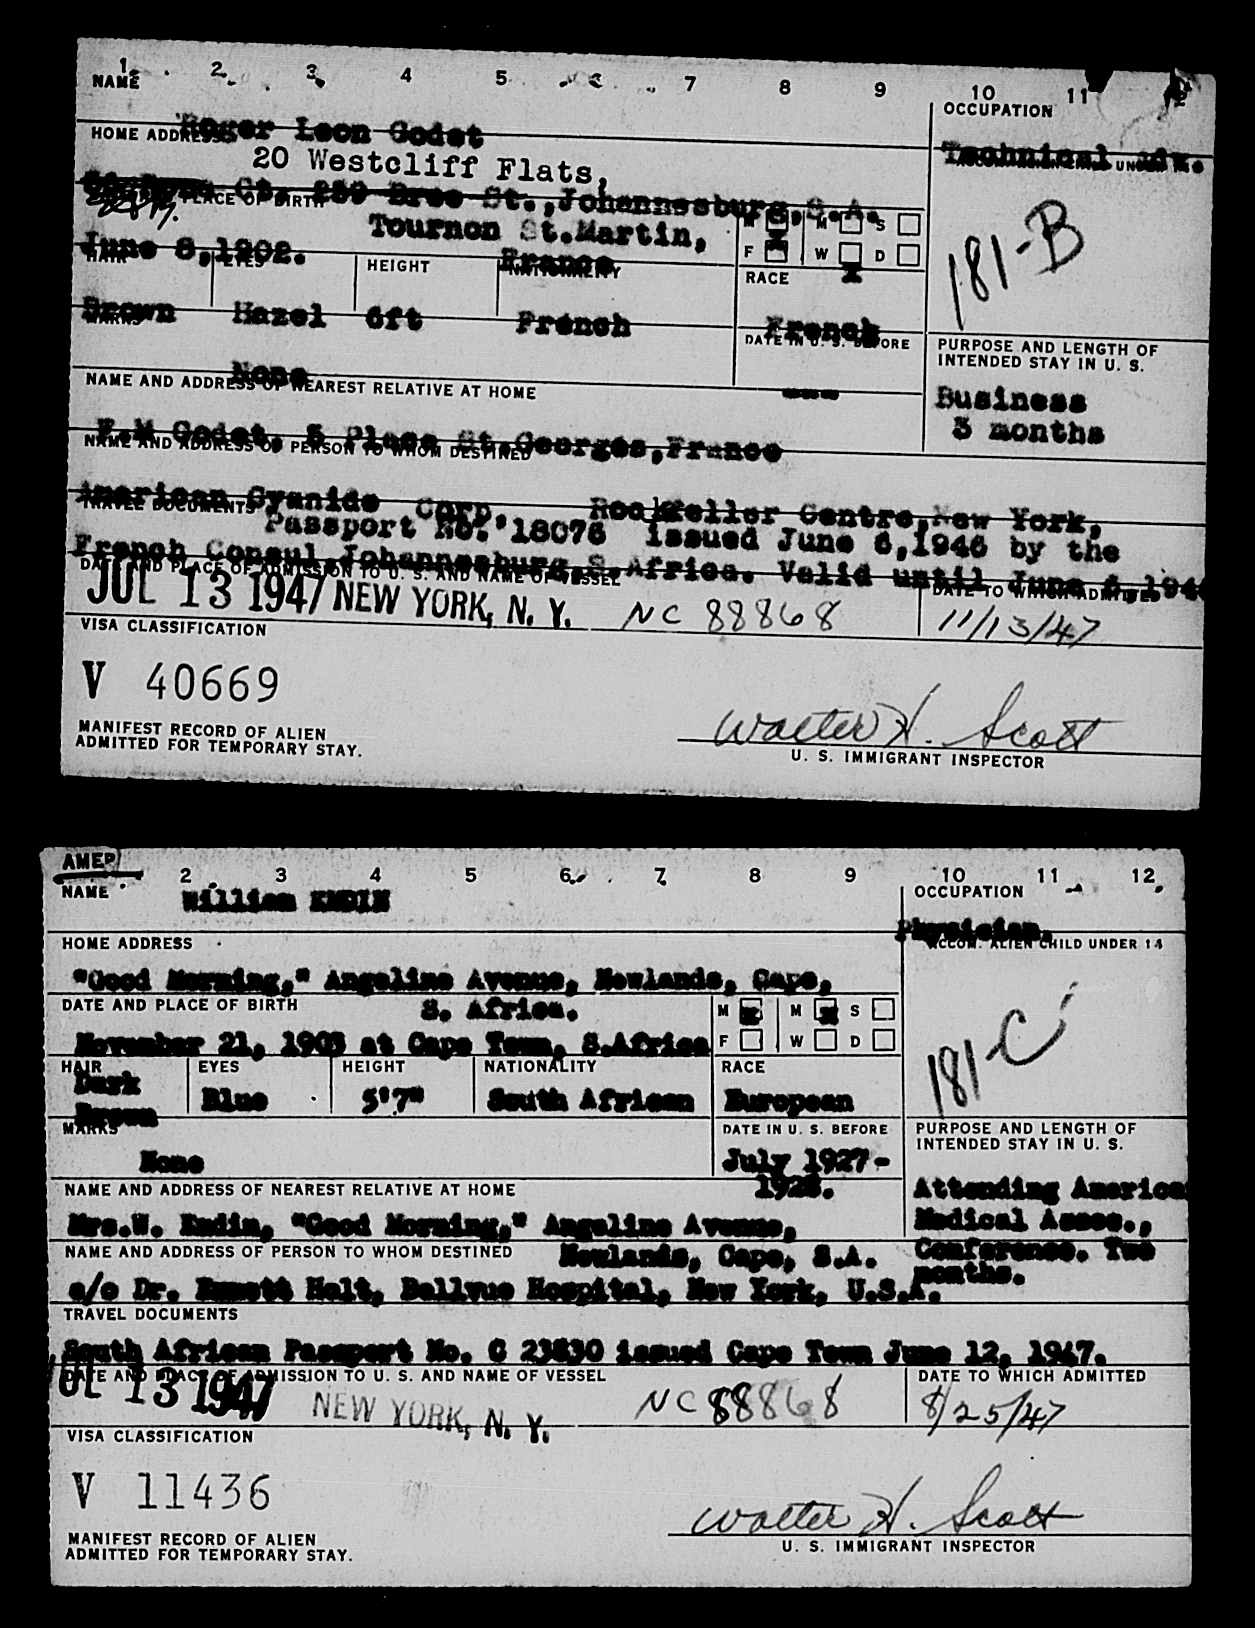 1 2 3 4 5 6 7 8 9 10 11
NAME
OCCUPATION
Roger Leon Godet
HOME ADDRESS
20 Westcliff Flats,
Technical
289 Bree St., Johannesburg, S.A.
PLACE OF BIRTH
Tournon St.Martin,
M M S
June 8,1902.
France
F W D
HAIR EYES HEIGHT NATIONALITY RACE
181-B
Brown Hazel 6ft French French
MARKS
DATE IN U. S. BEFORE
PURPOSE AND LENGTH OF
INTENDED STAY IN U. S.
None
---
NAME AND ADDRESS OF NEAREST RELATIVE AT HOME
Business
3 months
F.M Godet, 5 Place St.Georges,France
NAME AND ADDRESS OF PERSON TO WHOM DESTINED
American Cyanide Corp. Rockfeller Centre,New York,
TRAVEL DOCUMENTS
Passport No. 18076 issued June 6,1946 by the
French Consul,Johannesburg,S.Africa. Valid until June 6,194
DATE AND PLACE OF ADMISSION TO U. S. AND NAME OF VESSEL
DATE TO WHICH ADMITTED
JUL 13 1947 NEW YORK, N. Y. NC 88868 11/13/47
VISA CLASSIFICATION
V 40669
Walter H. Scott
MANIFEST RECORD OF ALIEN
ADMITTED FOR TEMPORARY STAY.
U. S. IMMIGRANT INSPECTOR
AMER
2 3 4 5 6 7 8 9 10 11 12
NAME
OCCUPATION
William EMDIN
Physician.
HOME ADDRESS
ACCOM. ALIEN CHILD UNDER 14
"Good Morning," Angelina Avenue, Newlands, Cape,
DATE AND PLACE OF BIRTH
S. Africa.
M M S
November 21, 1903 at Cape Town, S.Africa
F W D
HAIR EYES HEIGHT NATIONALITY RACE
181-C
Dark
Brown
Blue 5'7" South African European
MARKS
DATE IN U. S. BEFORE
PURPOSE AND LENGTH OF
INTENDED STAY IN U. S.
None
July 1927-
1928.
NAME AND ADDRESS OF NEAREST RELATIVE AT HOME
Attending America
Medical Assoc.,
Conference. Two
months.
Mrs.W. Emdin, "Good Morning," Angelina Avenue,
NAME AND ADDRESS OF PERSON TO WHOM DESTINED
Newlands, Cape, S.A.
c/o Dr. Emmett Holt, Bellvue Hospital, New York, U.S.A.
TRAVEL DOCUMENTS
South African Passport No. C 23830 issued Cape Town June 12, 1947.
DATE AND PLACE OF ADMISSION TO U. S. AND NAME OF VESSEL
DATE TO WHICH ADMITTED
JUL 13 1947 NEW YORK, N. Y. NC 88868 8/25/47
VISA CLASSIFICATION
V 11436
Walter H. Scott
MANIFEST RECORD OF ALIEN
ADMITTED FOR TEMPORARY STAY.
U. S. IMMIGRANT INSPECTOR